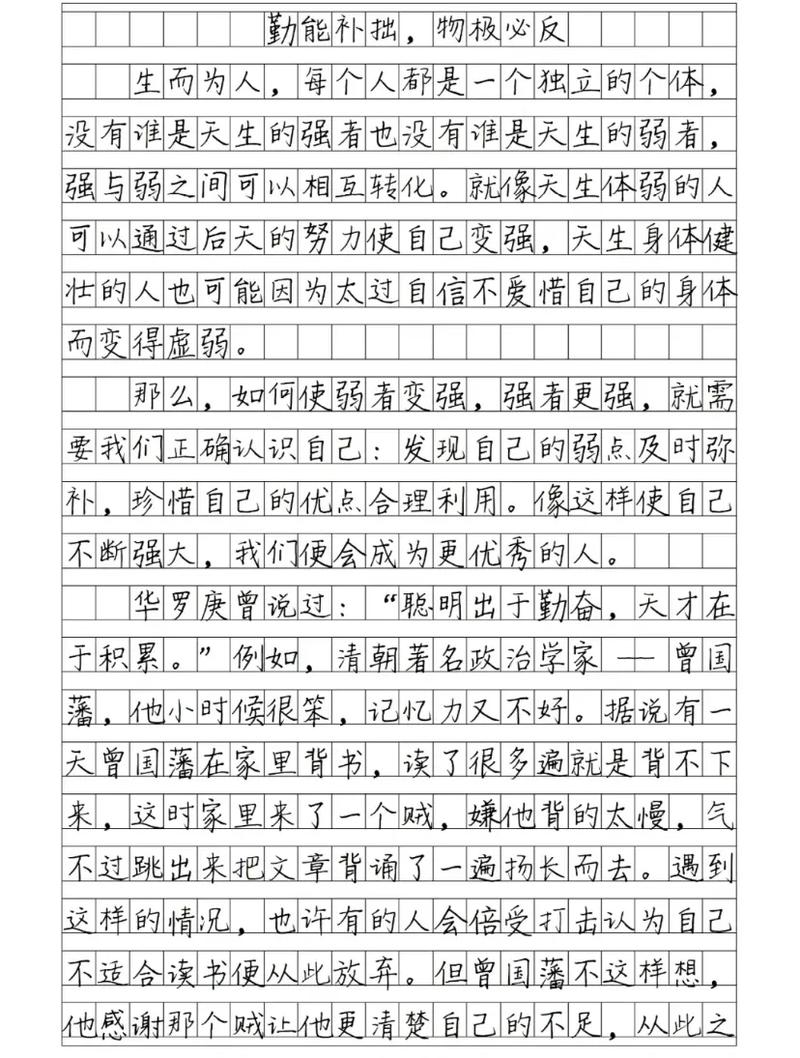 勤能补拙，物极必反
生而为人，每个人都是一个独立的个体，
没有谁是天生的强者也没有谁是天生的弱者，
强与弱之间可以相互转化。就像天生体弱的人
可以通过后天的努力使自己变强，天生身体健
壮的人也可能因为太过自信不爱惜自己的身体
而变得虚弱。
那么，如何使弱者变强，强者更强，就需
要我们正确认识自己：发现自己的弱点及时弥
补，珍惜自己的优点合理利用。像这样使自己
不断强大，我们便会成为更优秀的人。
华罗庚曾说过：“聪明出于勤奋，天才在
于积累。”例如，清朝著名政治学家——曾国
藩，他小时候很笨，记忆力又不好。据说有一
天曾国藩在家里背书，读了很多遍就是背不下
来，这时家里来了一个贼，嫌他背的太慢，气
不过跳出来把文章背诵了一遍扬长而去。遇到
这样的情况，也许有的人会倍受打击认为自己
不适合读书便从此放弃。但曾国藩不这样想，
他感谢那个贼让他更清楚自己的不足，从此之